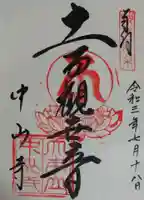 奉拝
令和三年七月十八日
十一面觀世音
中山寺